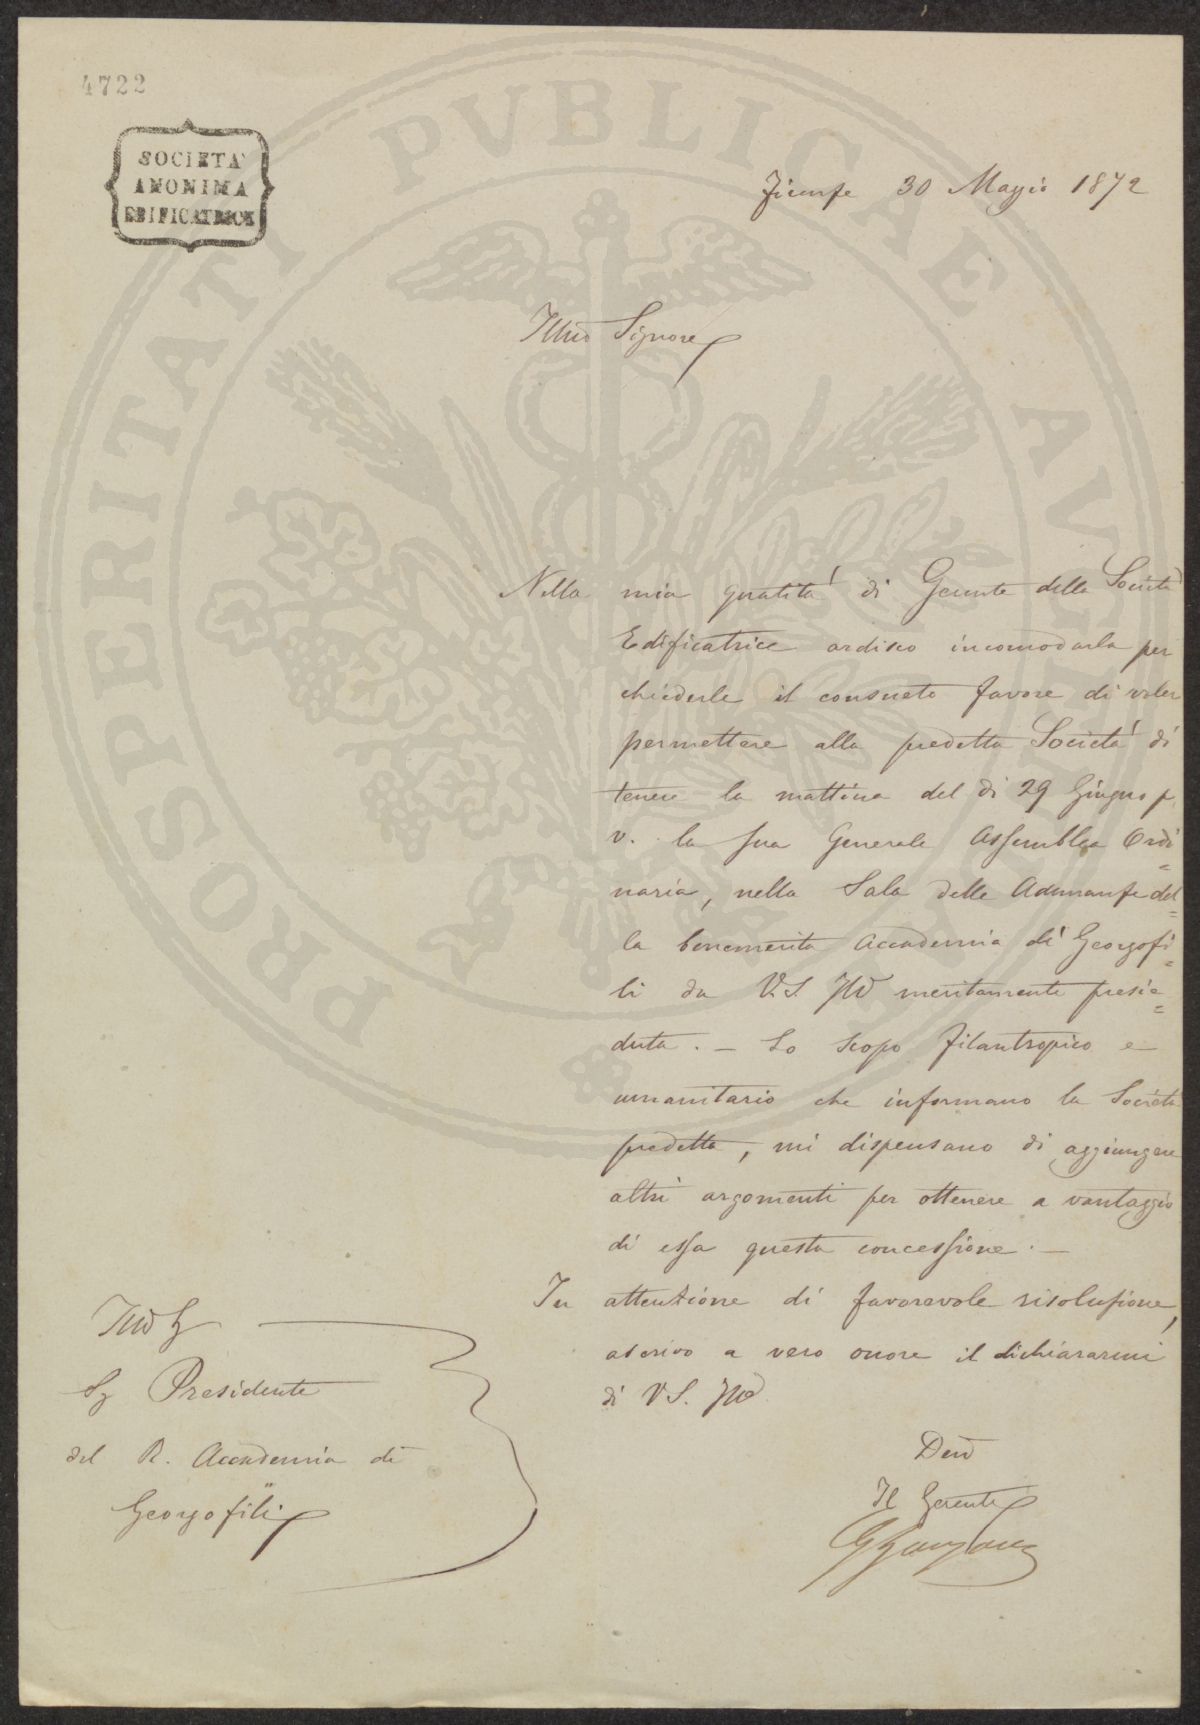 4722
SOCIETA'
ANONIMA
EDIFICATRICE
PROSPERITATI PVBLICAE AVGENDAE
Firenze 30 Maggio 1872
Illmo Signore
Nella mia qualità di Gerente della Società
Edificatrice ardisco incomodarla per
chiederle il consueto favore di voler
permettere alla predetta Società di
tenere la mattina del dì 29 Giugno p.
v. la sua Generale Assemblea Ordi=
naria, nella Sala delle Adunanze del=
la benemerita Accademia di Georgofi=
li da V.S. Illma meritamente presie=
duta. — Lo scopo filantropico e
umanitario che informano la Società
predetta, mi dispensano di aggiungere
altri argomenti per ottenere a vantaggio
di essa questa concessione. —
In attenzione di favorevole risoluzione,
ascrivo a vero onore il dichiararmi
di V.S. Illma
Devmo
Il Gerente
Illmo Sig
Sig Presidente
del R. Accademia di
Georgofili